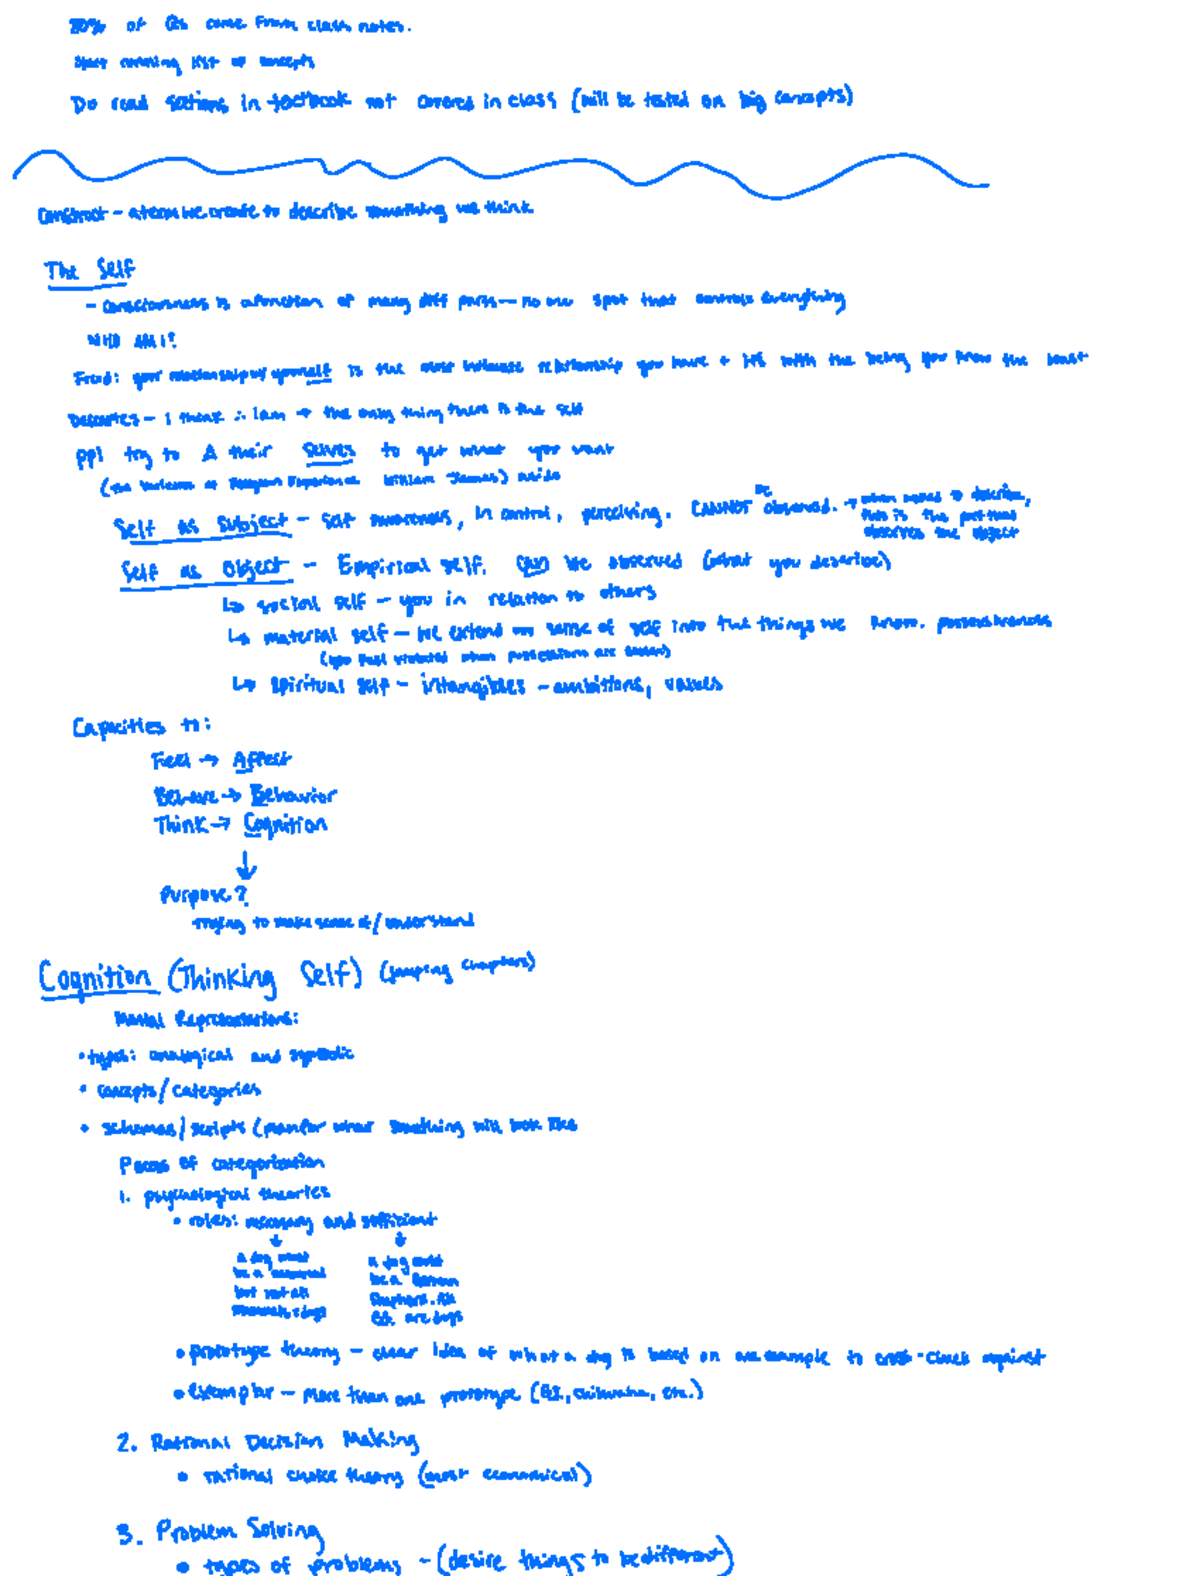 80% of Qs come from class notes.
Start running list of concepts
Do read sections in textbook not covered in class (will be tested on big concepts)
Construct - a term we create to describe something we think
The Self
- Consciousness is a function of many diff parts - no one spot that controls everything
Who am I?
Freud: your relationship w/ yourself is the most intimate relationship you have + it's with the being you know the least
Descartes - I think ∴ I am → the only thing there is is the self
ppl try to Δ their selves to get what you want
(The Varieties of Religious Experience William James)
Self as Subject - self awareness, in control, perceiving. CANNOT be observed. → when asked to describe,
this is the part that
observes the object
Self as Object - Empirical self. CAN be observed (what you describe)
↳ social self - you in relation to others
↳ material self - we extend our sense of self into the things we know. possessions
(you feel violated when possessions are stolen)
↳ spiritual self - intangibles - ambitions, values
Capacities to:
Feel → Affect
Behave → Behavior
Think → Cognition
↓
Purpose?
trying to make sense of / understand
Cognition (Thinking Self) (jumping chapters)
Mental Representations:
• types: analogical and symbolic
• concepts/categories
• schemas/scripts (plan for what something will look like
Process of categorization
1. psychological theories
• rules: necessary and sufficient
↓ ↓
a dog must
be a mammal
but not all
mammals = dogs
a dog could
be a German
Shepherd. All
G.S. are dogs
• prototype theory - clear idea of what a dog is based on one example to cross-check against
• exemplar - more than one prototype (G.S., chihuahua, etc.)
2. Rational Decision Making
• rational choice theory (most economical)
3. Problem Solving
• types of problems - (desire things to be different)